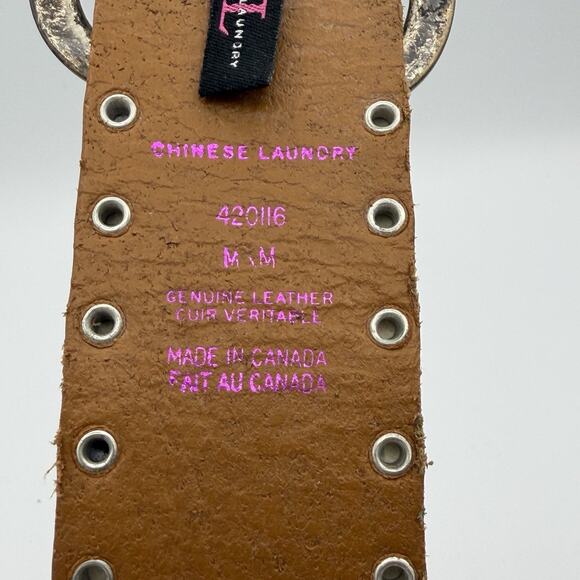 L
LAUNDRY
CHINESE LAUNDRY
420116
M\M
GENUINE LEATHER
CUIR VERITABLE
MADE IN CANADA
FAIT AU CANADA